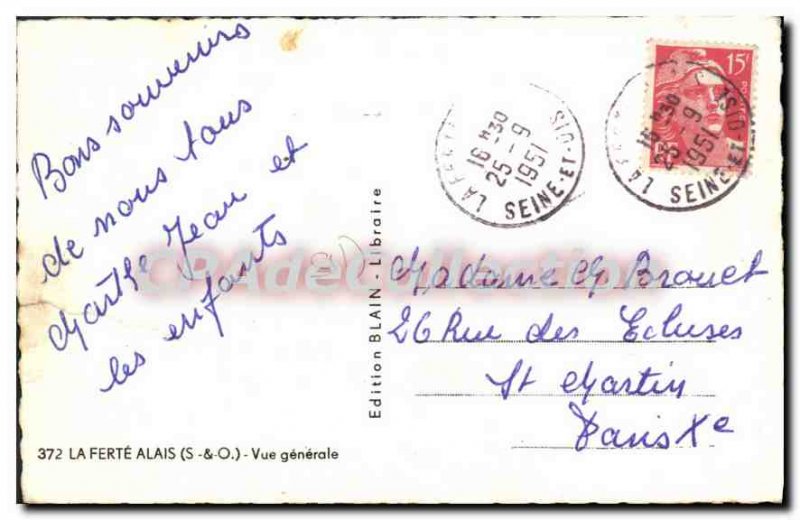 Bons souvenirs
de nous tous
Marthe Jean et
les enfants
372 LA FERTÉ ALAIS (S-&-O.) - Vue générale
Edition BLAIN - Libraire
15F
16 H30
25 - 9
1951
SEINE-ET-OISE
16 H30
25 - 9
1951
SEINE-ET-OISE
Madame G Brouet
26 Rue des Ecluses
St Martin
Paris Xe
CPAdeCollection